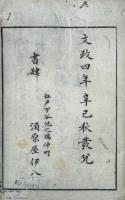 文政四年辛巳秋發兌
江戸下谷池之端仲町
書肆
須原屋伊八